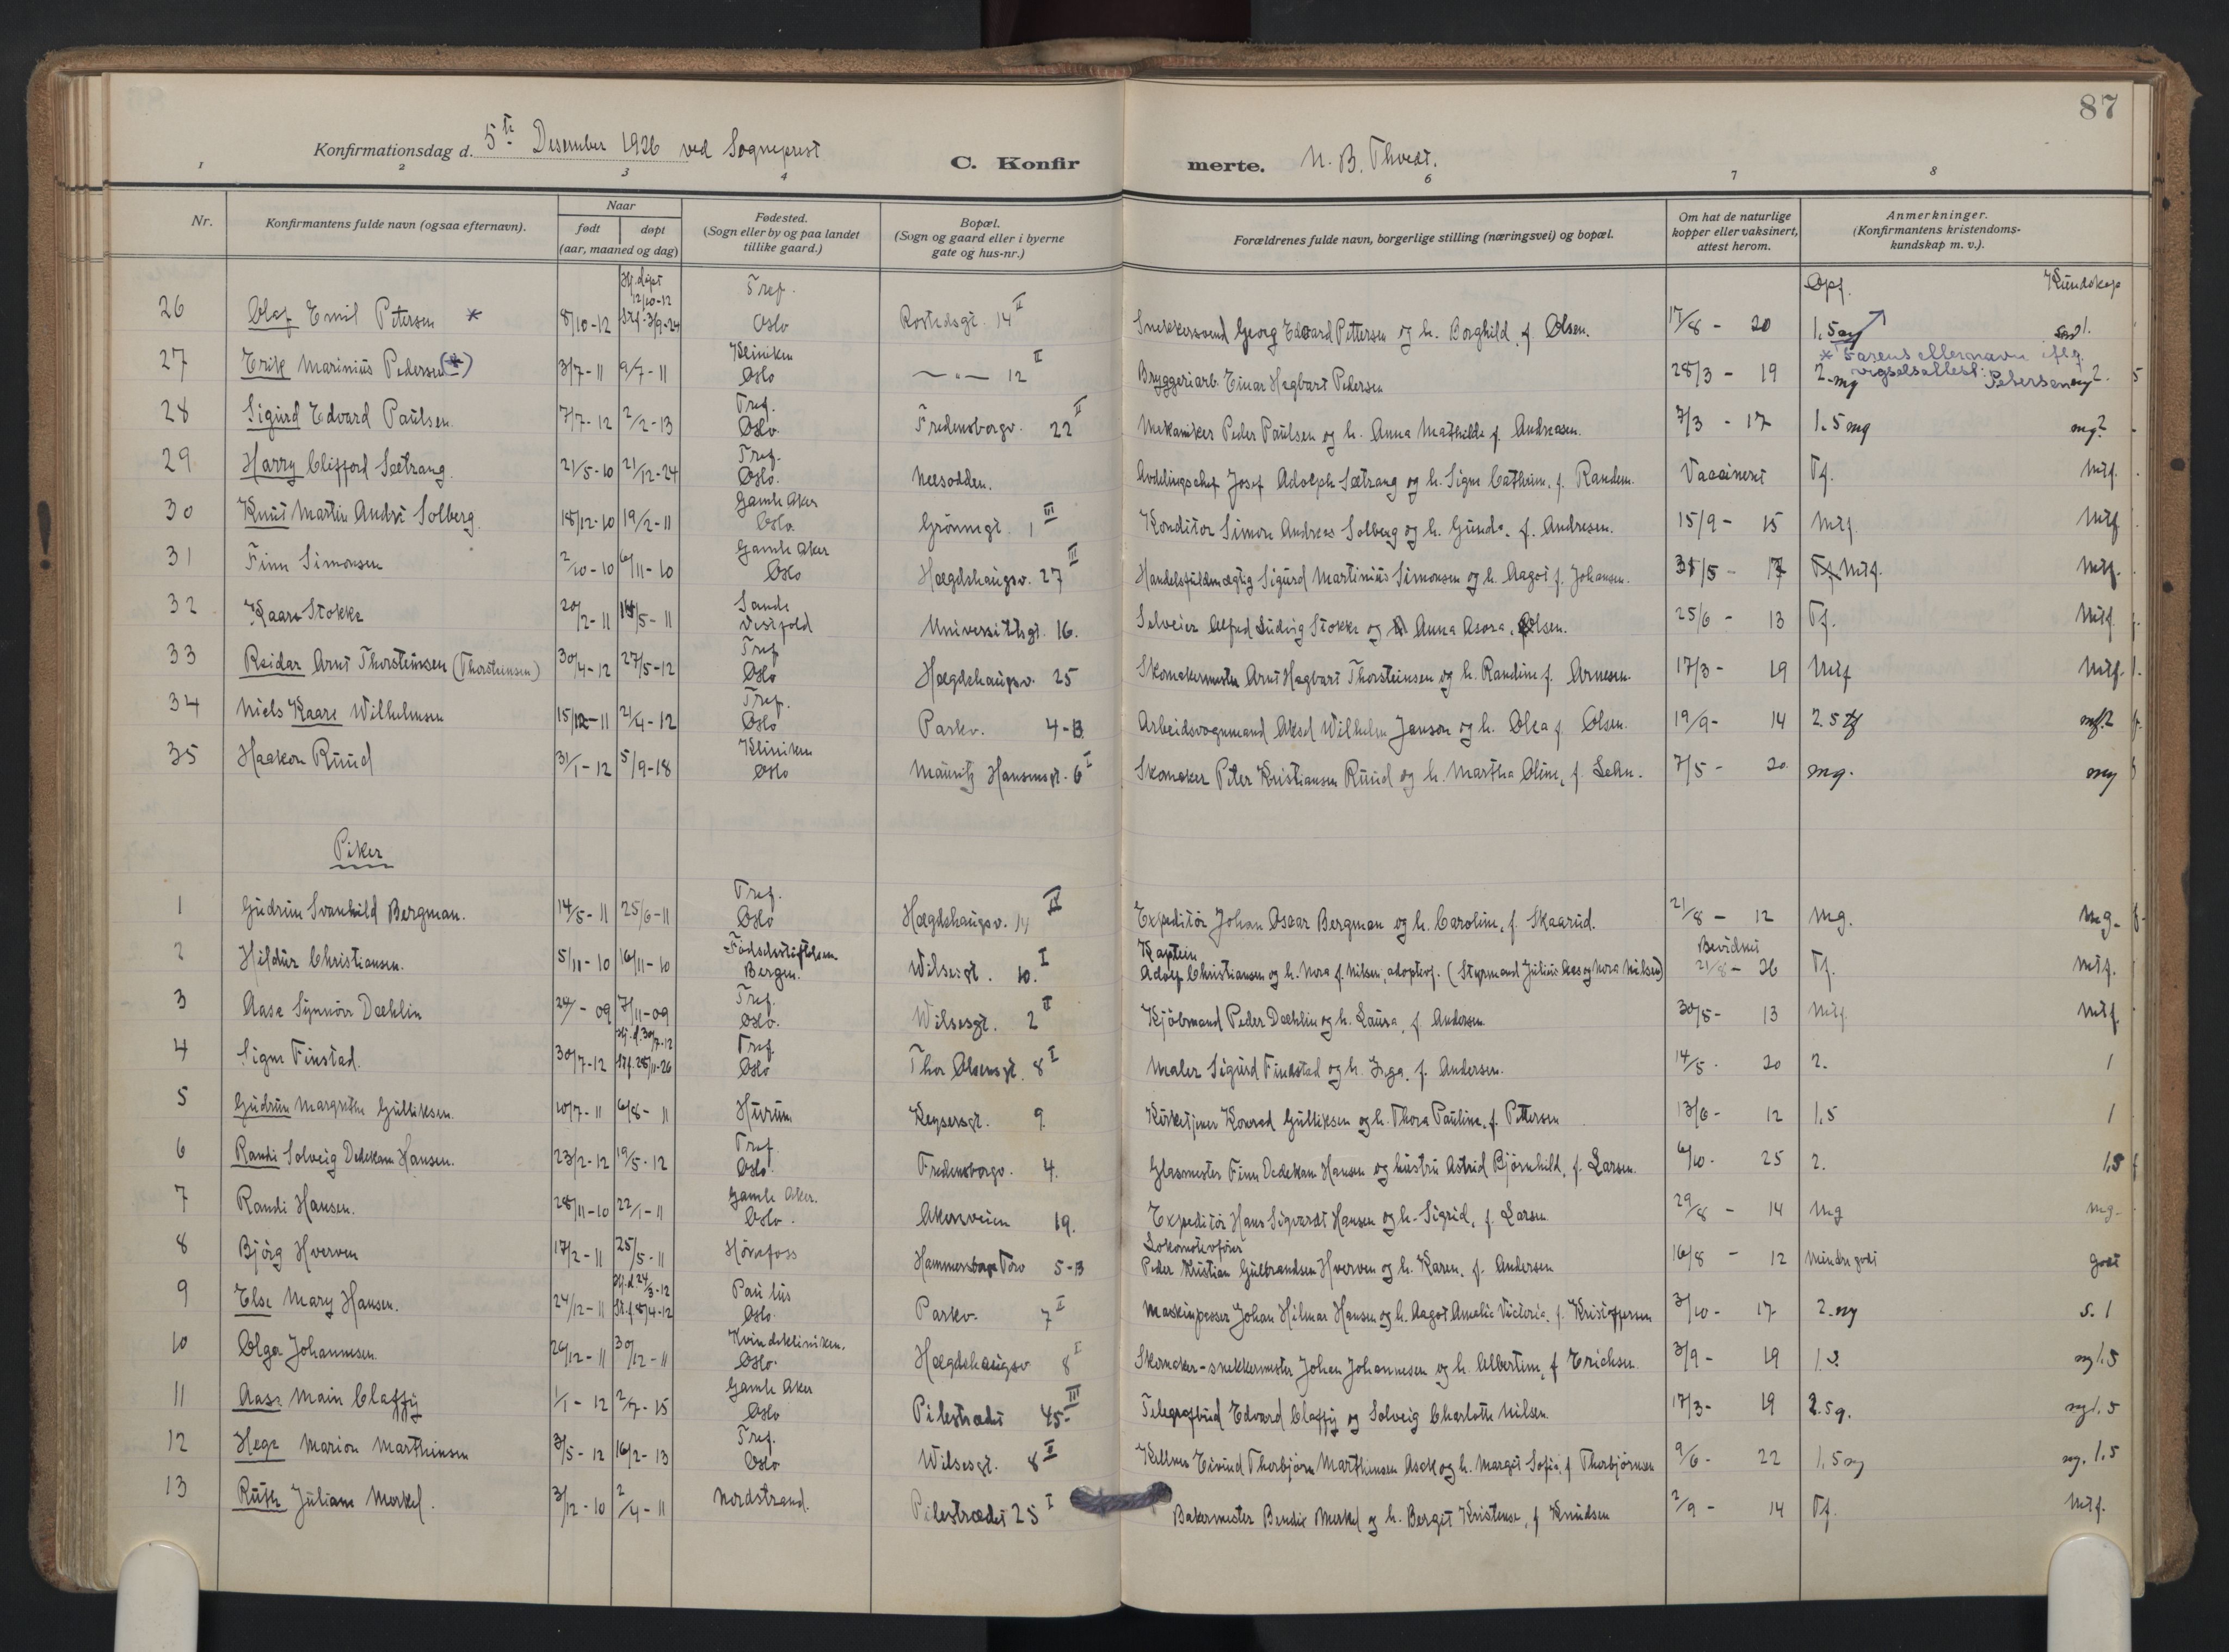 87
Konfirmationsdag d. 5te Desember 1926 ved Sogneprest
C. Konfirmerte. N. B. Thvedt.
1 2 3 4 6 7 8
Nr. Konfirmantens fulde navn (ogsaa efternavn). Naar født døpt (aar, maaned og dag) Fødested. (Sogn eller by og paa landet tillike gaard.) Bopæl. (Sogn og gaard eller i byerne gate og hus-nr.) Forældrenes fulde navn, borgerlige stilling (næringsvei) og bopæl. Om hat de naturlige kopper eller vaksinert, attest herom. Anmerkninger. (Konfirmantens kristendoms-kundskap m. v.).
Opf. Kundskap
26 Olaf Emil Petersen * 8/10-12 Hj.døpt 12/10-12 St.f. 3/9-24 Tref. Oslo Rostedsgt. 14 II Snekkersvend Georg Edvard Pettersen og h. Borghild, f. Olsen. 17/8 - 20 1.5
* Farens etternavn iflg. vigselsattest: Petersen
27 Erik Marinius Pedersen (*) 3/7-11 9/7-11 Kliniken Oslo — " — 12 II Bryggeriarb. Einar Hagbart Pedersen 28/3 - 19 2-mg
28 Sigurd Edvard Paulsen. 7/7-12 2/2-13 Tref. Oslo. Fredensborgv. 22 II Mekaniker Peder Paulsen og h. Anna Mathilde f. Andreasen. 7/3 - 17 1.5 mg mg2
29 Harry Clifford Sætrang. 21/5-10 21/12-24 Tref. Oslo. Nesodden. Avdelingschef Josef Adolph Sætrang og h. Signe Cathrine, f. Randem. Vaccinert Tf. Mtf.
30 Knut Martin André Solberg. 18/12-10 19/2-11 Gamle Aker Oslo. Grönnegt. 1 III Konditor Simon Andreas Solberg og h. Gunda, f. Andresen. 15/9 - 15 Mtf. Mtf
31 Finn Simonsen 2/10-10 6/11-10 Gamle Aker Oslo Hægdehaugsv. 27 III Handelsfuldmægtig Sigurd Martinius Simonsen og h. Aagot f. Johansen. 31/5 - 17 Tf Mtf. Mtf.
32 Kaare Stokke 20/2-11 14/5-11 Sande Vestfold Universitetsgt. 16. Selveier Alfred Ludvig Stokke og Anna Asora, Olsen. 25/6 - 13 Tf. Mtf.
33 Reidar Arnt Thorsteinsen (Thorsteinsen) 30/4-12 27/5-12 Tref Oslo Hægdehaugsv. 25 Skomakermester Arnt Hagbart Thorsteinsen og h. Randine f. Arnesen. 17/3 - 19 Mtf Mtf.
34 Niels Kaare Wilhelmsen 15/12-11 21/4-12 Tref. Oslo Parkv. 4-B Arbeidsvognmand Aksel Wilhelm Janson og h. Olea f. Olsen. 19/9 - 14 2.5 tf
35 Haakon Ruud 31/1-12 5/9-18 Kliniken Oslo Mauritz Hansensgt. 6 I Skomaker Peter Kristiansen Ruud og h. Martha Oline, f. Lehn. 7/5 - 20 mg. mg
Piker
1 Gudrun Svanhild Bergman. 14/5-11 25/6-11 Tref. Oslo Hægdehaugsv. Expeditör Johan Oscar Bergman og h. Caroline, f. Skaarud. 21/8 - 12 Mg. Mg.
2 Hildur Christiansen. 5/11-10 16/11-10 Födselsstiftelsen Bergen. Wilsesgt. 10. I Kaptein Adolf Christiansen og h. Nora f. Nilsen, adoptivf. (Styrmand Julius Aas og Nora Nilsen) Bevidnet 21/8 - 26 Tf. Mtf.
3 Aase Synnöve Dæhlin 24/ - 09 7/11-09 Tref. Oslo. Wilsesgt. 2 II Kjöbmand Peder Dæhlin og h. Laura, f. Andersen. 30/5 - 13 Mtf. Mtf.
4 Signe Finstad. 30/7-12 Hj.d. 30/7-12 St.f. 28/11-26 Tref. Oslo Thor Olsensgt. 8 I Maler Sigurd Findstad og h. Inga, f. Andersen. 14/5 - 20 2. 1
5 Gudrun Margrethe Gulliksen. 10/7-11 6/8-11 Hurum Keysersgt. 9. Kirketjener Konrad Gulliksen og h. Thora Pauline, f. Pettersen 13/6 - 12 1,5 1
6 Randi Solveig Dedekam Hansen. 23/2-12 19/5-12 Tref. Oslo. Fredensborgv. 4. Glasmester Finn Dedekam Hansen og hustru Astrid Björnhild, f. Larsen. 6/10 - 25 2. 1,5
7 Randi Hansen. 28/11-10 22/1-11 Gamle Aker. Oslo. Akersveien 19. Expeditör Hans Sigvardt Hansen og h. Sigrid, f. Larsen 29/8 - 14 Mg mg.
8 Björg Hverven 17/2-11 25/5-11 Hönefoss Hammersborg Torv 5-B Lokomotivförer Peder Kristian Gulbrandsen Hverven og h. Karen, f. Andersen 16/8 - 12 Mindre godt Godt
9 Else Mary Hansen. 24/12-11 Hj.d. 24/3-12 St.f. 8/4-12 Paulus Oslo. Parkv. 7 I Maskinpasser Johan Hilmar Hansen og h. Aagot Amalie Victoria, f. Kristoffersen 3/10 - 17 2-mg s. 1
10 Olga Johannesen. 26/12-11 30/12-11 Kvindekliniken. Oslo. Hægdehaugsv 8 I Skomaker-snekkermester Johan Johannesen og h. Albertine, f Erichsen. 3/9 - 19 mg 1.5
11 Aase Main Claffy 1/1-12 2/7-15 Gamle Aker Oslo Pilestrædet 45 III Telegrafbud Edvard Claffy og Solveig Charlotte Nilsen. 17/3 - 19 2.5 g. mg 1.5
12 Hege Marion Marthinsen 3/5-12 16/2-13 Tref. Oslo Wilsesgt. 8 II Kellner Eivind Thorbjörn Marthinsen Asck og h. Margit Sofie, f Thorbjörnsen 9/6 - 22 1,5 mg mg. 1.5
13 Ruth Juliane Merkel. 3/12-10 2/4-11 Nordstrand. Pilestrædet 25 I Bakermester Bendix Merkel og h. Bergit Kristense, f Knudsen 2/9 - 14 Tf. Mtf.